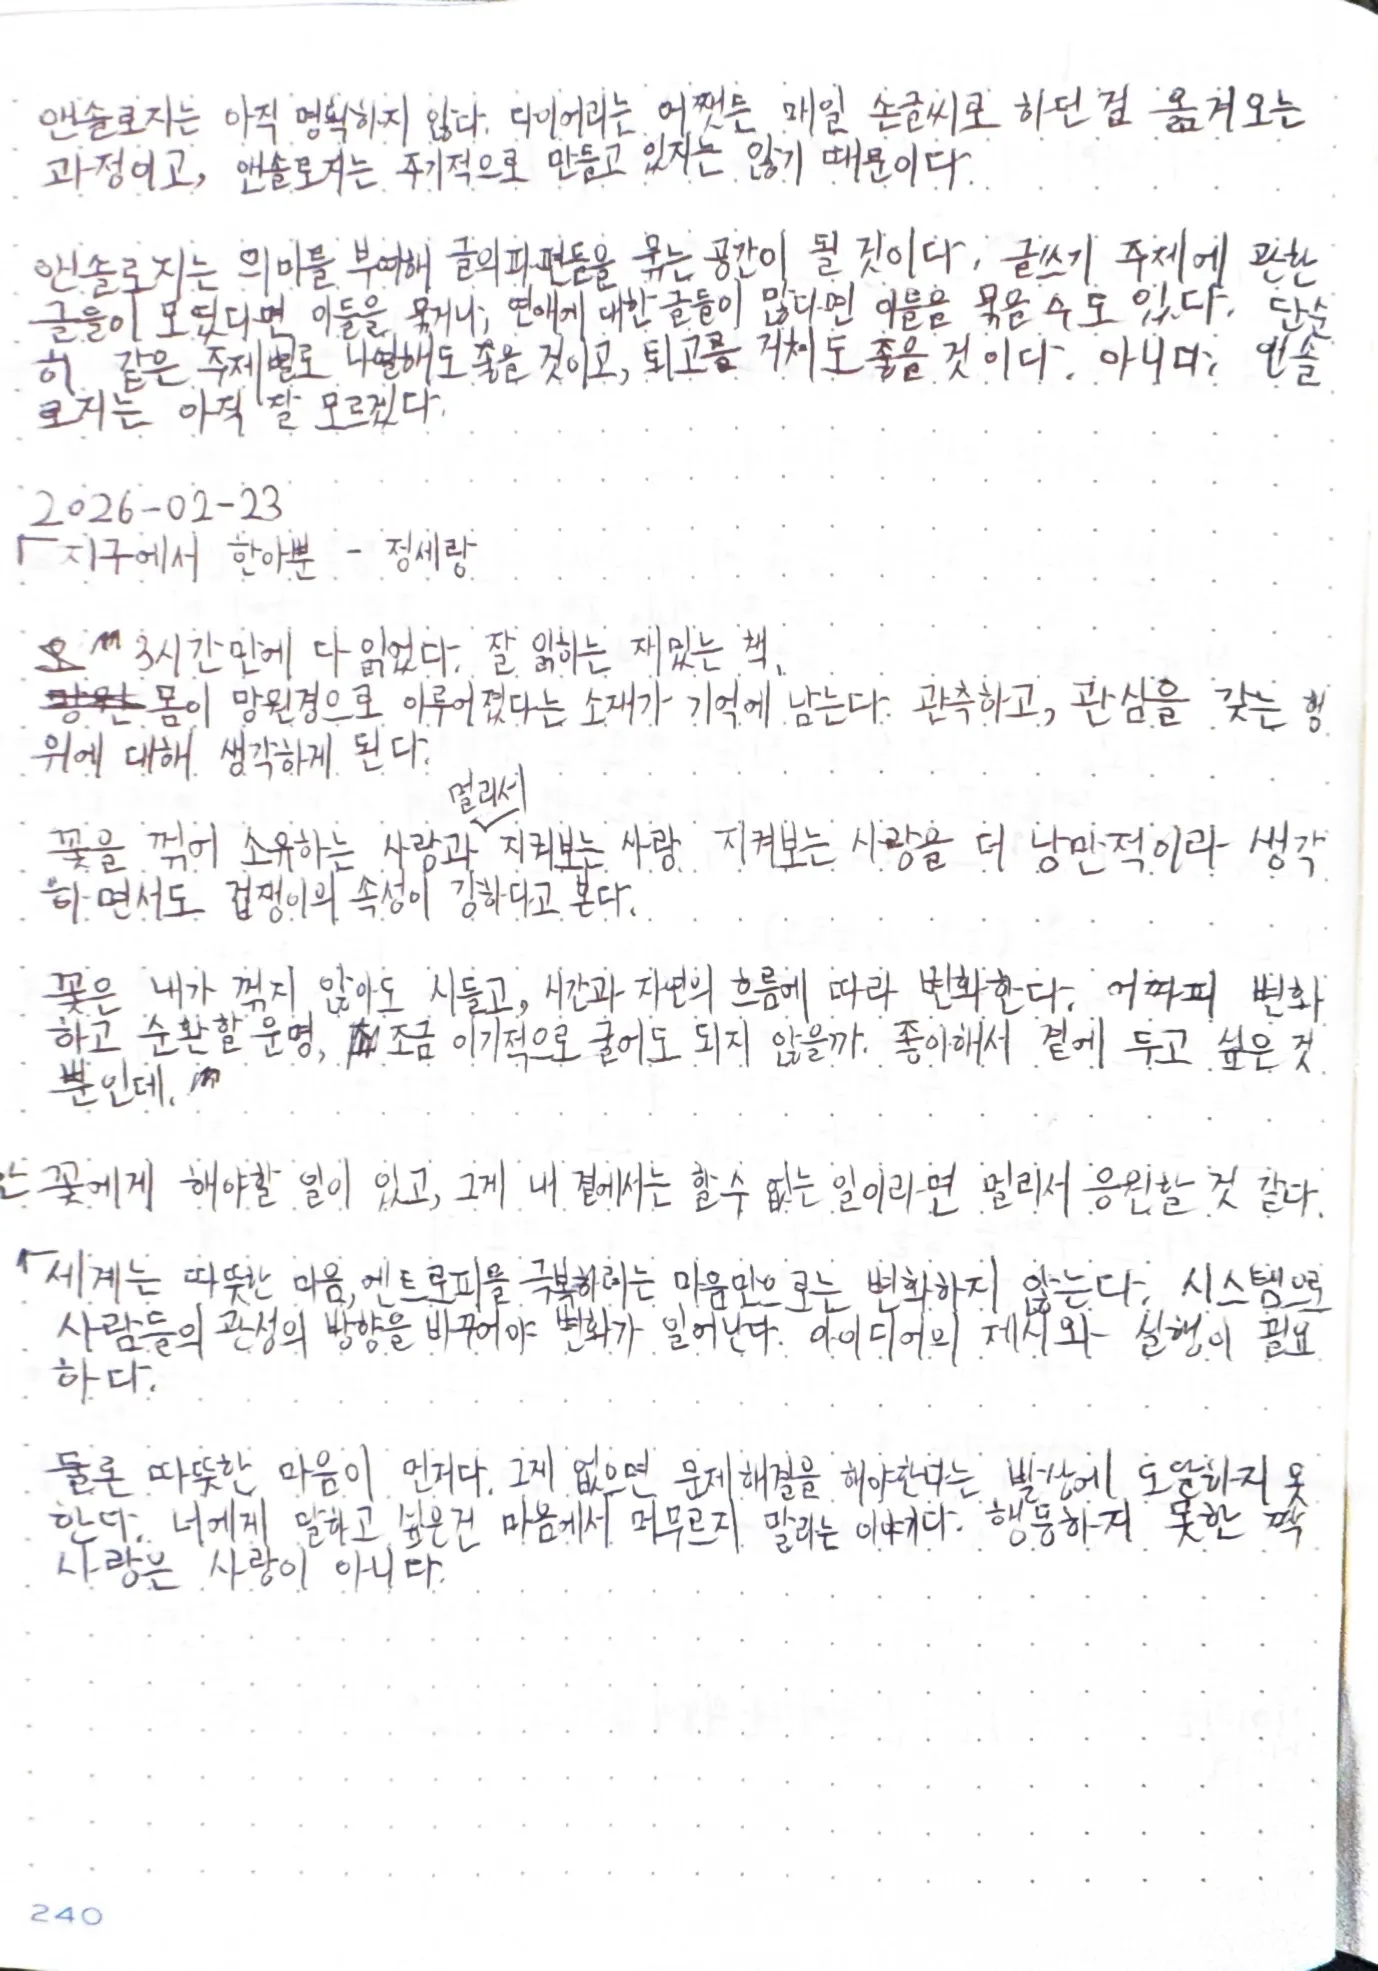 앤솔로지는 아직 명확하지 않다. 다이어리는 어쨌든 매일 손글씨로 하던걸 옮겨오는
과정이고, 앤솔로지는 주기적으로 만들고 있지는 않기 때문이다.
앤솔로지는 의미를 부여해 글의 파편들을 묶는 공간이 될 것이다. 글쓰기 주제에 관한
글들이 모였다면 이들을 묶거나, 연애에 대한 글들이 많다면 이들을 묶을 수도 있다. 단순
히 같은 주제별로 나열해도 좋을 것이고, 퇴고를 거쳐도 좋을 것이다. 아니다, 앤솔
로지는 아직 잘 모르겠다.
2026-02-23
「지구에서 한아뿐 - 정세랑
3시간만에 다 읽었다. 잘 읽히는 재밌는 책.
망원 몸이 망원경으로 이루어졌다는 소재가 기억에 남는다. 관측하고, 관심을 갖는 행
위에 대해 생각하게 된다.
멀리서
꽃을 꺾어 소유하는 사랑과 지켜보는 사랑. 지켜보는 사랑을 더 낭만적이라 생각
하면서도 겁쟁이의 속성이 강하다고 본다.
꽃은 내가 꺾지 않아도 시들고, 시간과 자연의 흐름에 따라 변화한다. 어차피 변화
하고 순환할 운명, 조금 이기적으로 굴어도 되지 않을까. 좋아해서 곁에 두고 싶은 것
뿐인데.
꽃에게 해야할 일이 있고, 그게 내 곁에서는 할 수 없는 일이라면 멀리서 응원할 것 같다.
세계는 따뜻한 마음, 엔트로피를 극복하려는 마음만으로는 변화하지 않는다. 시스템으로
사람들의 관성의 방향을 바꾸어야 변화가 일어난다. 아이디어의 제시와 실행이 필요
하다.
물론 따뜻한 마음이 먼저다. 그게 없으면 문제해결을 해야한다는 발상에 도달하지 못
한다. 너에게 말하고 싶은건 마음에서 머무르지 말라는 이야기다. 행동하지 못한 짝
사랑은 사랑이 아니다.
240